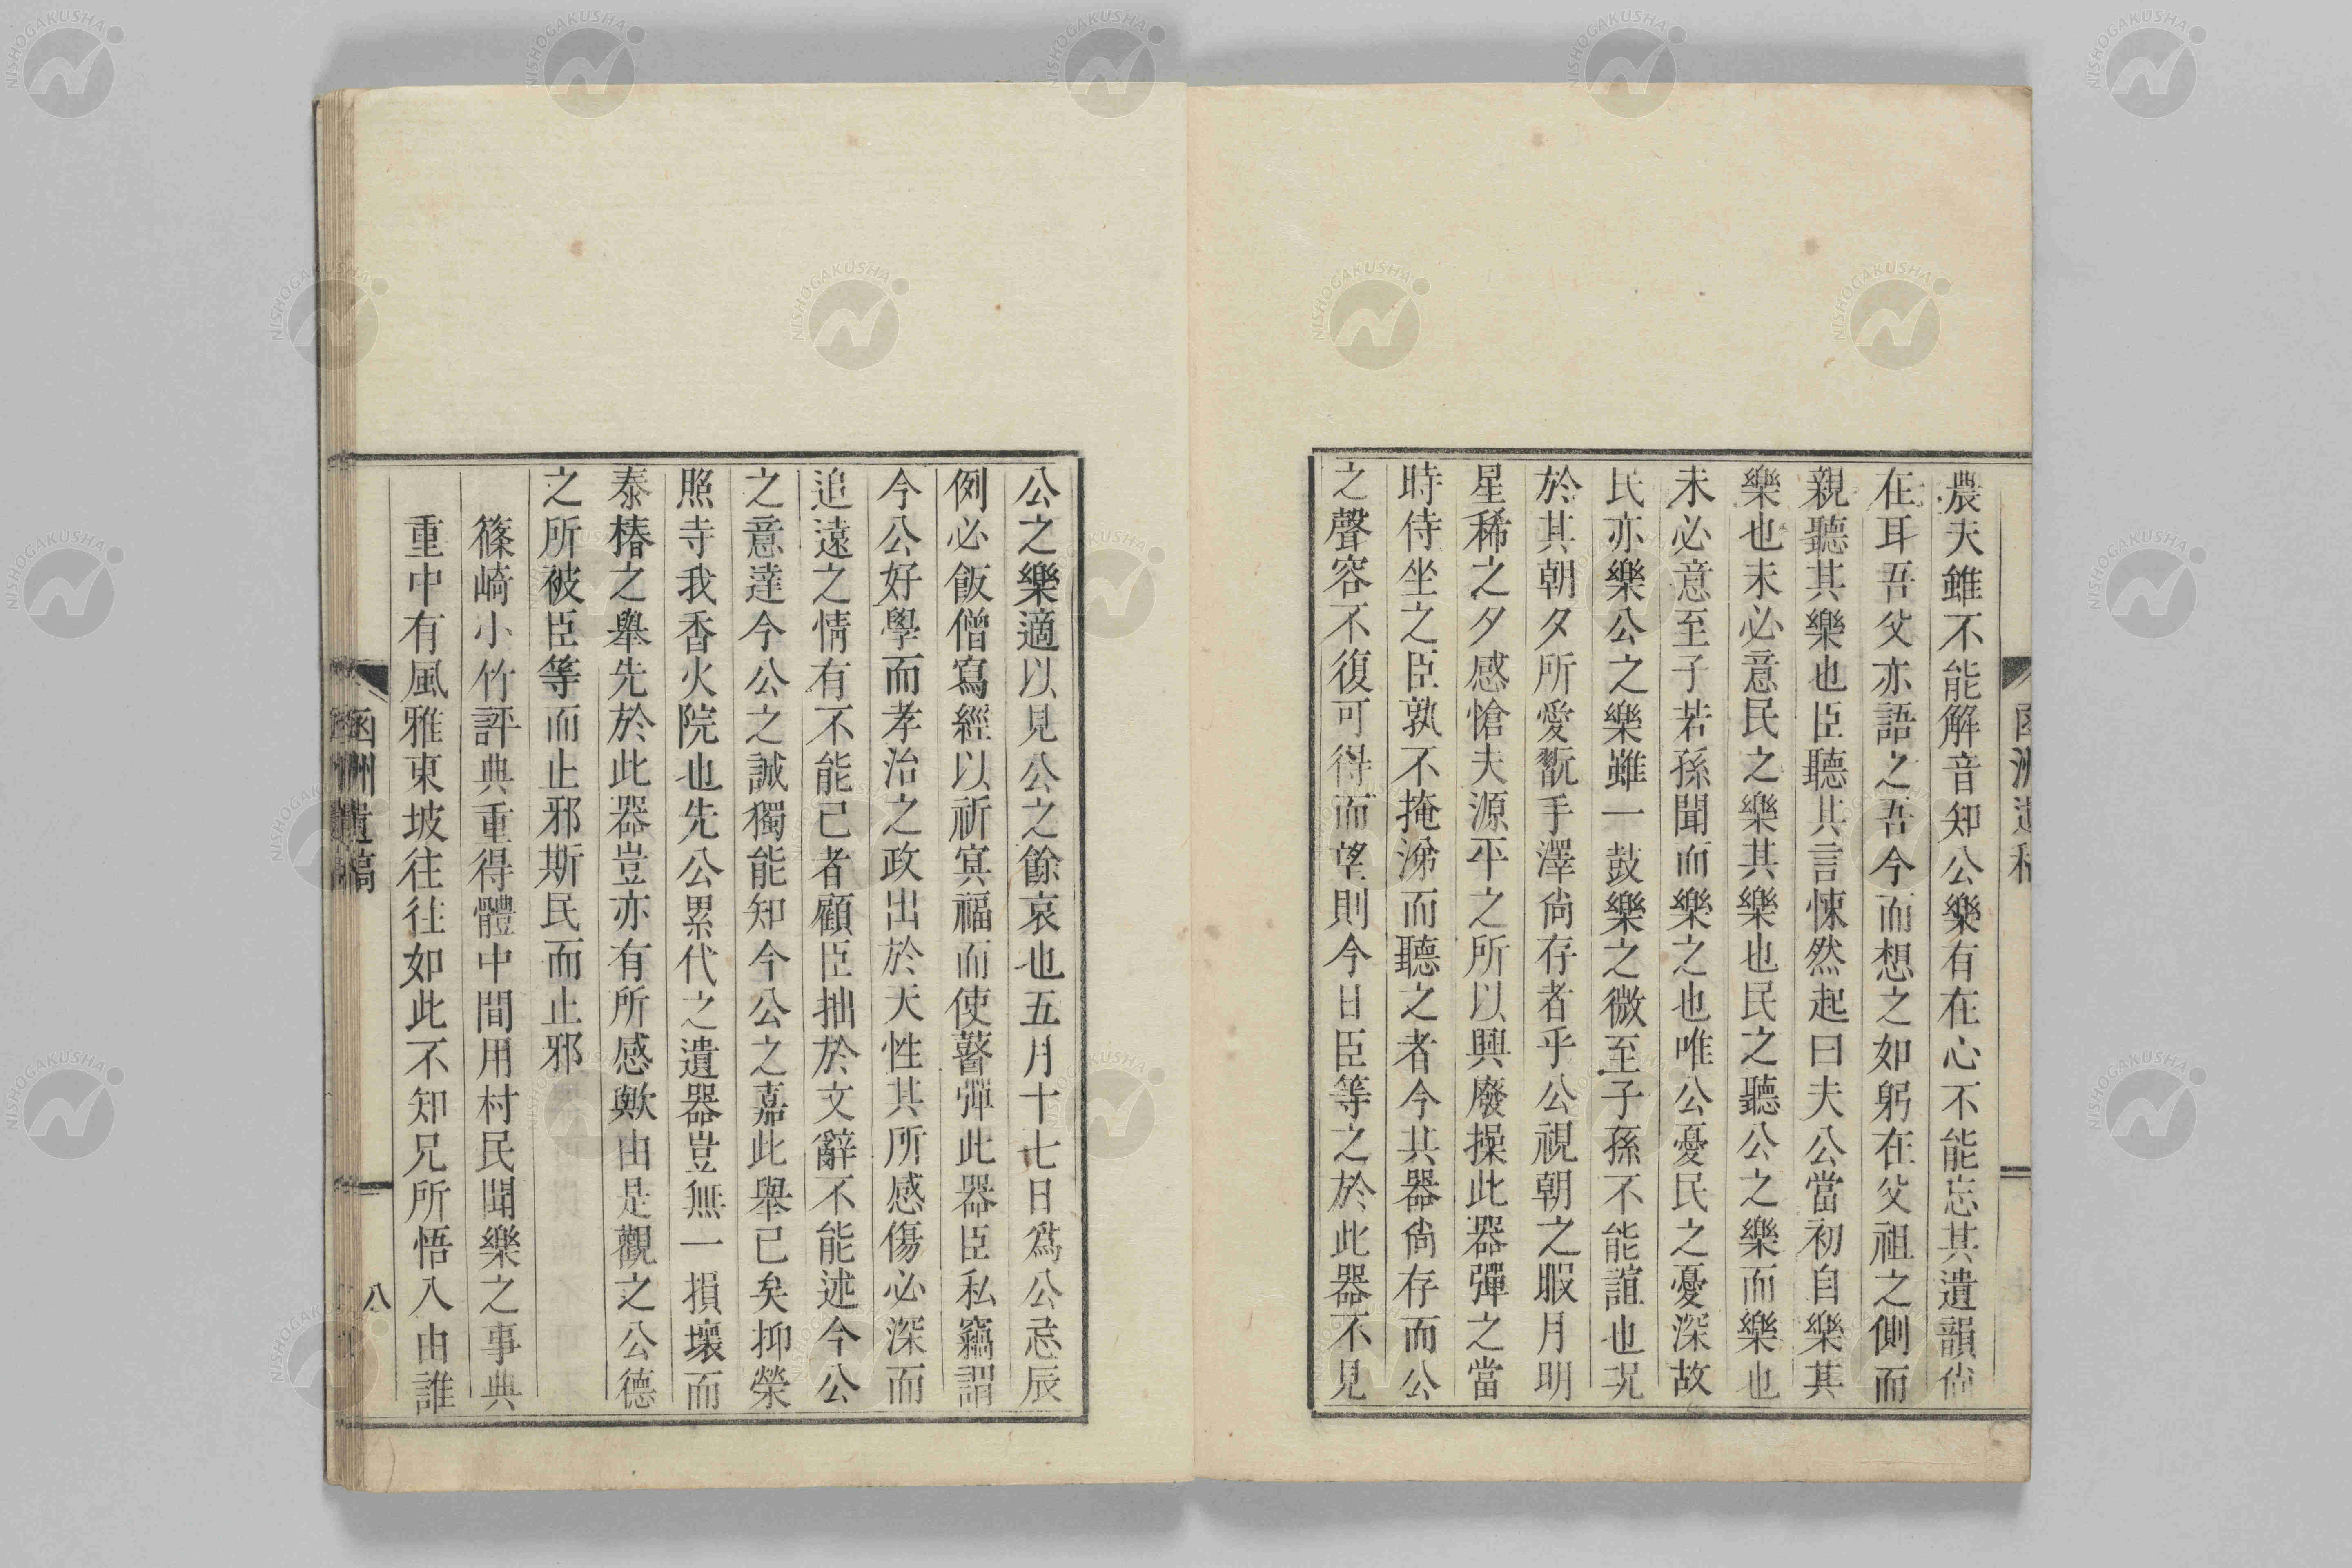 農夫雖不能解音知公樂有在心不能忘其遺韻尙
在耳吾父亦語之吾今而想之如躬在父祖之側而
親聽其樂也臣聽其言悚然起曰夫公當初自樂其
樂也未必意民之樂其樂也民之聽公之樂而樂也
未必意至子若孫聞而樂之也唯公憂民之憂深故
民亦樂公之樂雖一鼓樂之微至子孫不能諠也況
於其朝夕所愛翫手澤尙存者乎公視朝之暇月明
星稀之夕感愴夫源平之所以興廢操此器彈之當
時侍坐之臣孰不掩涕而聽之者今其器尙存而公
之聲容不復可得而望則今日臣等之於此器不見
公之樂適以見公之餘哀也五月十七日爲公忌辰
例必飯僧寫經以祈冥福而使瞽彈此器臣私竊謂
今公好學而孝治之政出於天性其所感傷必深而
追遠之情有不能已者顧臣拙於文辭不能述今公
之意達今公之誠獨能知今公之嘉此舉已矣抑榮
照寺我香火院也先公累代之遺器豈無一損壞而
泰椿之舉先於此器豈亦有所感歟由是觀之公德
之所被臣等而止邪斯民而止邪
篠崎小竹評典重得體中間用村民聞樂之事典
重中有風雅東坡往往如此不知兄所悟入由誰
函洲遺稿
八
NISHOGAKUSHA